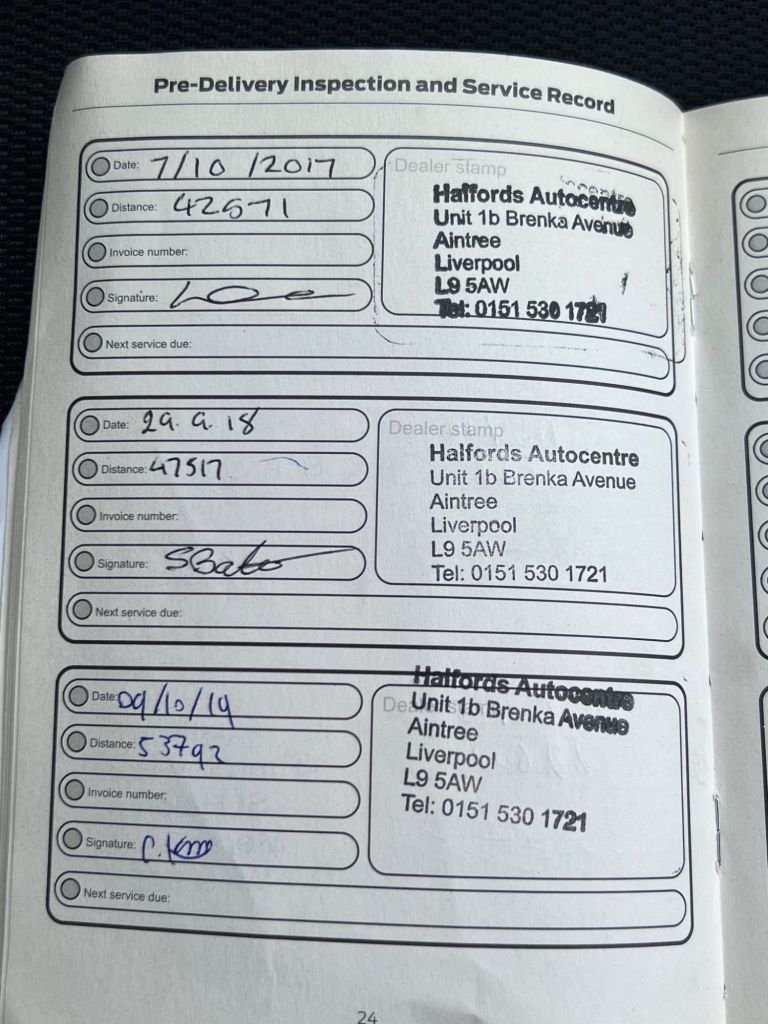 Pre-Delivery Inspection and Service Record
Date: 7/10/2017
Distance: 42571
Invoice number:
Signature:
Next service due:
Dealer stamp
Halfords Autocentre
Unit 1b Brenka Avenue
Aintree
Liverpool
L9 5AW
Tel: 0151 530 1721
Date: 29.9.18
Distance: 47517
Invoice number:
Signature:
Next service due:
Dealer stamp
Halfords Autocentre
Unit 1b Brenka Avenue
Aintree
Liverpool
L9 5AW
Tel: 0151 530 1721
Date: 09/10/19
Distance: 53792
Invoice number:
Signature:
Next service due:
Dealer stamp
Halfords Autocentre
Unit 1b Brenka Avenue
Aintree
Liverpool
L9 5AW
Tel: 0151 530 1721
24